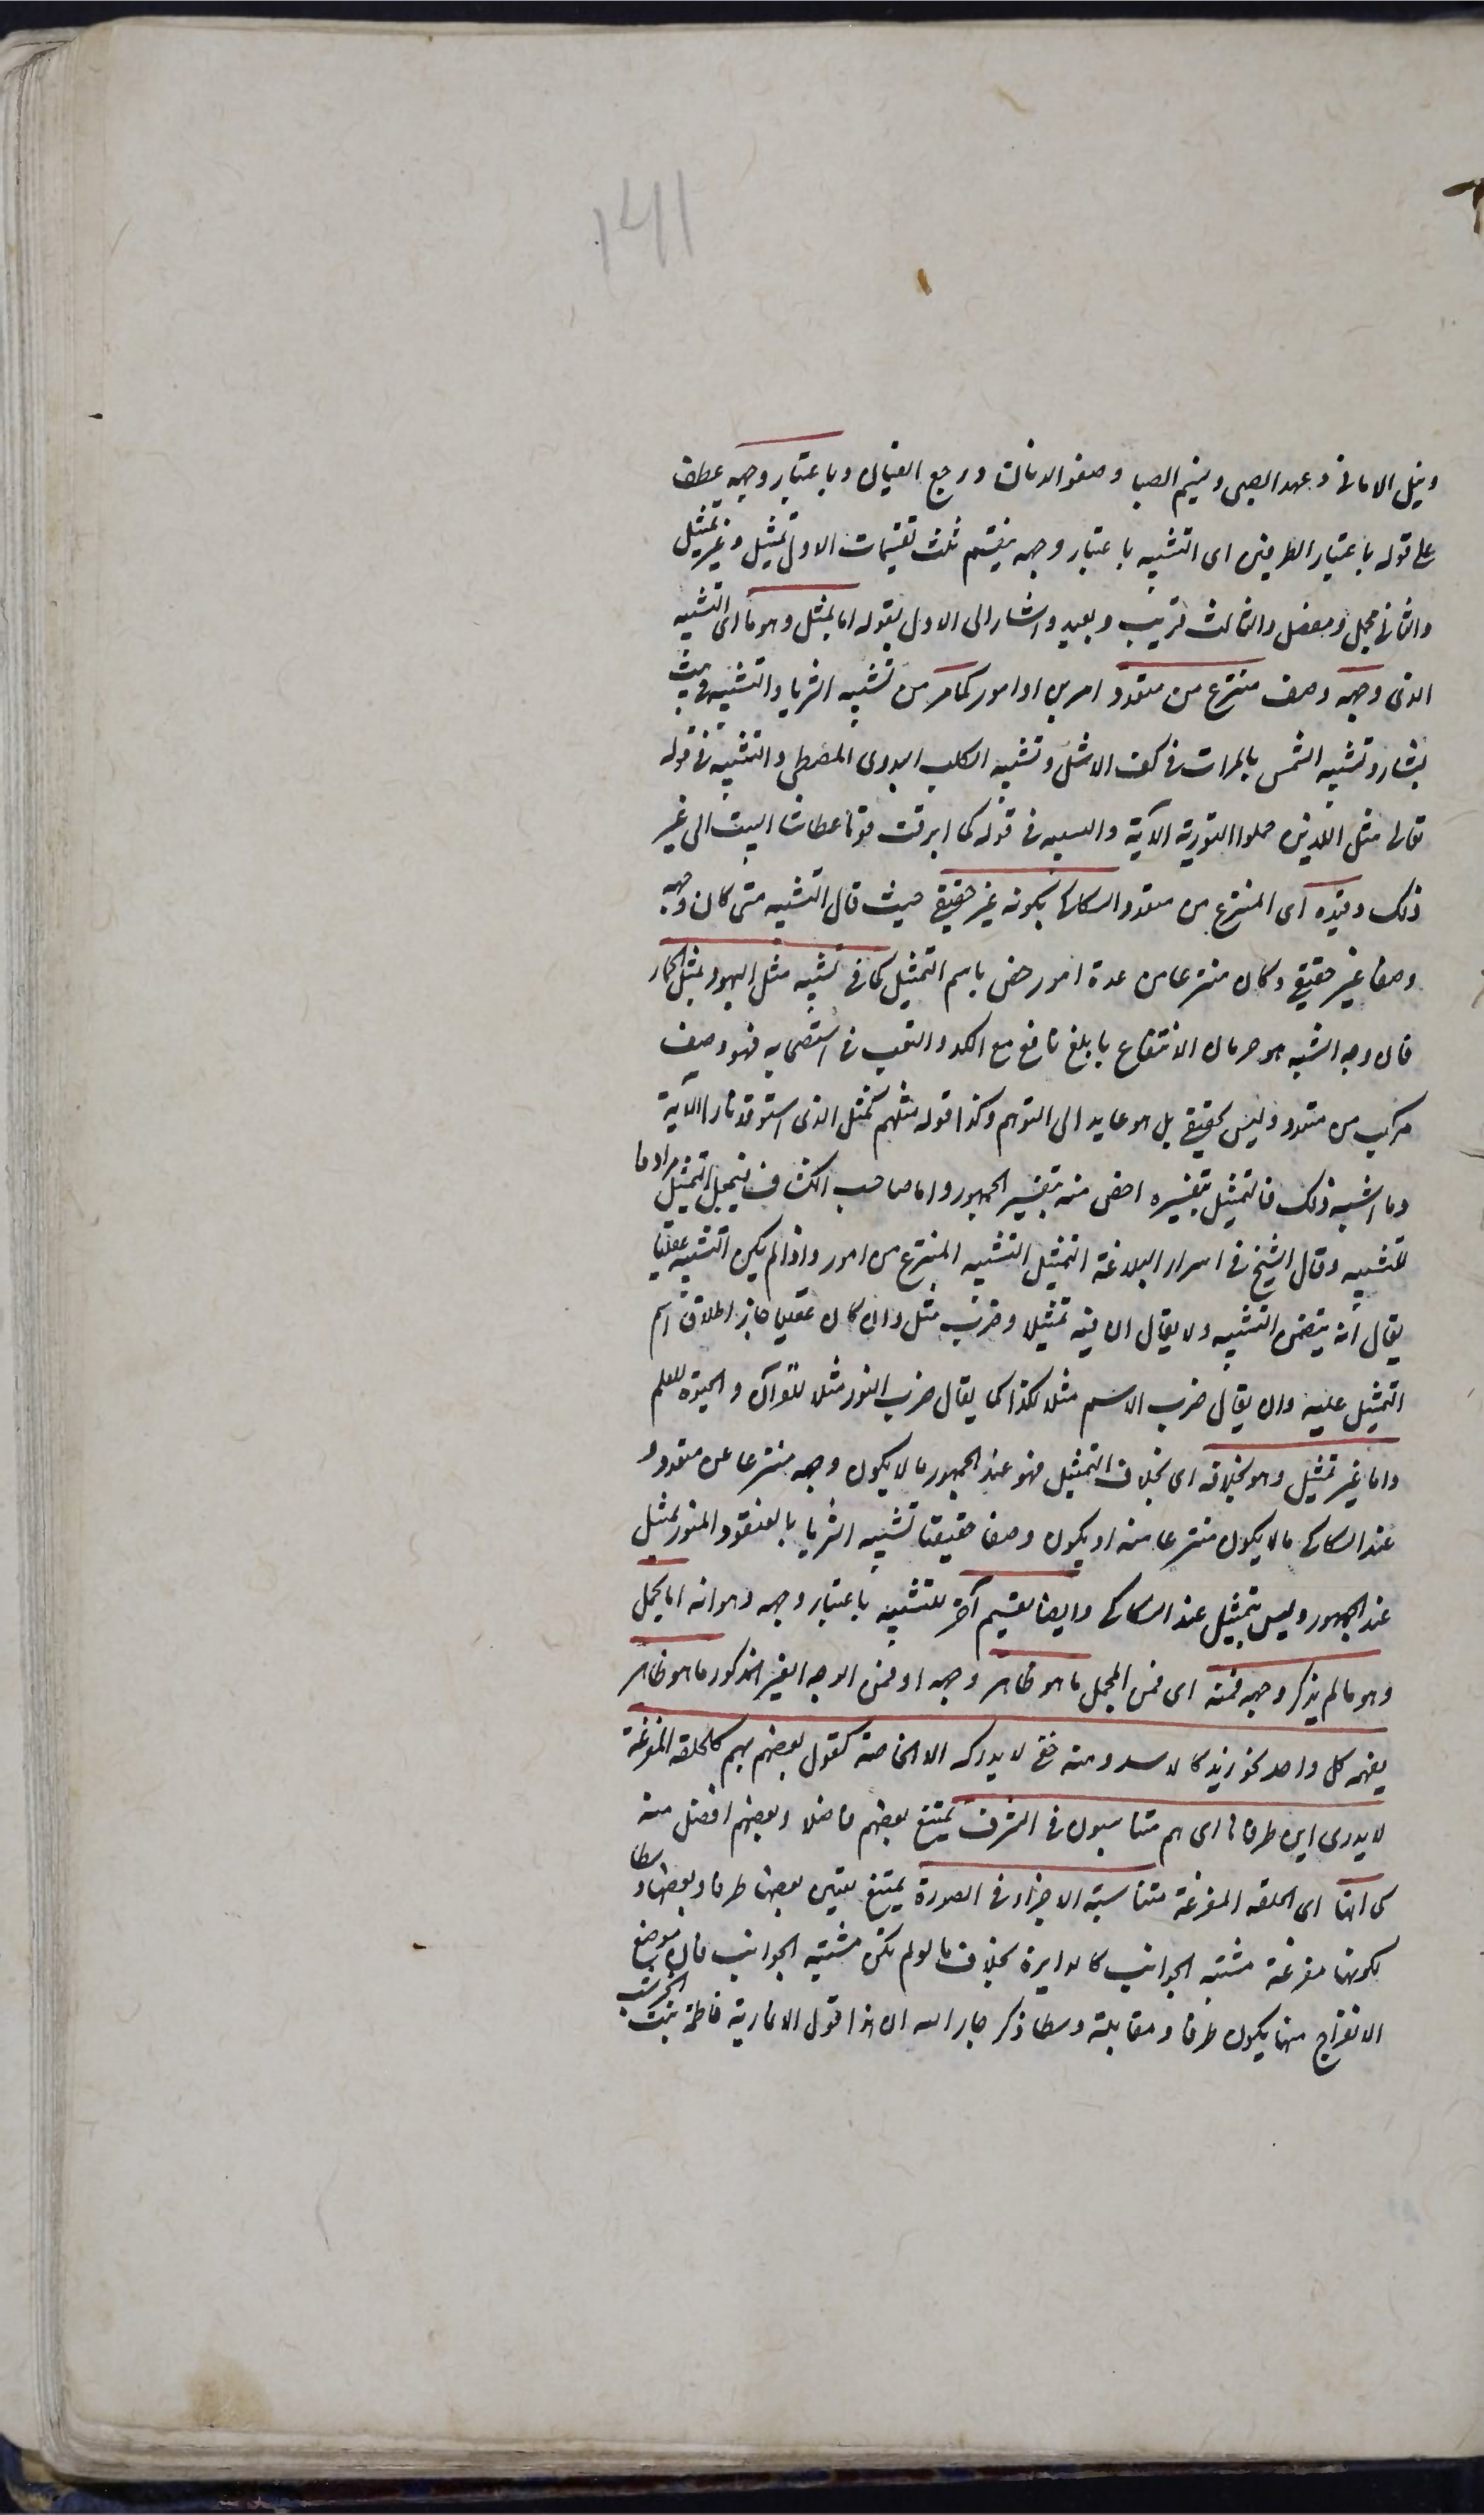 ١٤١
ونيل الاماني وعهد الصبى ونسيم الصبا وصفو الدنان ورجع القيان وباعتبار وجهه عطف
على قوله باعتبار الطرفين اى التشبيه باعتبار وجهه ينقسم ثلث تقسيمات الاول تمثيل وغير تمثيل
والثاني مجمل ومفصل والثالث قريب وبعيد واشار الى الاول بقوله اما تمثيل وهو ما اى التشبيه
الذى وجهه وصف منتزع من متعدد امرين او امور كما مر من تشبيه الثريا والتشبيه فى بيت
بشار وتشبيه الشمس بالمرات فى كف الاشل وتشبيه الكلب البدوى المصطلي والتشبيه فى قوله
تعالى مثل الذين حملوا التورية الآية والتشبيه فى قوله كما ابرقت قوما عطاشا البيت الى غير
ذلك وقيده اى المنتزع من متعدد السكاكى بكونه غير حقيقي حيث قال التشبيه متى كان وجهه
وصفا غير حقيقي وكان منتزعا من عدة امور خص باسم التمثيل كما فى تشبيه مثل اليهود بمثل الحمار
فان وجه الشبه هو حرمان الانتفاع بابلغ نافع مع الكد والتعب فى استصحابه فهو وصف
مركب من متعدد وليس بحقيقي بل هو عايد الى التوهم وكذا قوله مثلهم كمثل الذى استوقد نارا الآية
وما اشبه ذلك فالتمثيل بتفسيره اخص منه بتفسير الجمهور واما صاحب الكشاف فيجعل التمثيل مرادفا
للتشبيه وقال الشيخ فى اسرار البلاغة التمثيل التشبيه المنتزع من امور واذا لم يكن التشبيه عقليا
يقال انه يتضمن التشبيه ولا يقال ان فيه تمثيلا وضرب مثل وان كان عقليا جاز اطلاق اسم
التمثيل عليه وان يقال ضرب الاسم مثلا لكذا كما يقال ضرب النور مثلا للقرآن والحيوة للعلم
واما غير تمثيل وهو بخلافه اى بخلاف التمثيل فهو عند الجمهور ما لا يكون وجهه منتزعا عن متعدد و
عند السكاكى ما لا يكون منتزعا منه او يكون وصفا حقيقيا تشبيه الثريا بالعنقود المنور تمثيل
عند الجمهور وليس بتمثيل عند السكاكى وايضا تقسيم آخر للتشبيه باعتبار وجهه وهو انه اما مجمل
وهو ما لم يذكر وجهه فمنه اى فمن المجمل ما هو ظاهر وجهه او فمن الوجه الغير المذكور ما هو ظاهر
يفهمه كل واحد نحو زيد كالاسد ومنه خفى لا يدركه الا الخاصة كقول بعضهم هم كالحلقة المفرغة
لا يدرى اين طرفاها اى هم متناسبون فى الشرف يمتنع بعضهم فاضلا وبعضهم افضل منه
كما انها اى الحلقة المفرغة متناسبة الاجزاء فى الصورة يمتنع تعيين بعضها طرفا وبعضها وسطا
لكونها مفرغة مشتبه الجوانب كالدايرة بخلاف ما لو لم تكن مشتبه الجوانب فان موضع
الانفراج منها يكون طرفا ومقابلته وسطا ذكر جار الله ان هذا قول الانمارية فاطمة بنت الخرشب